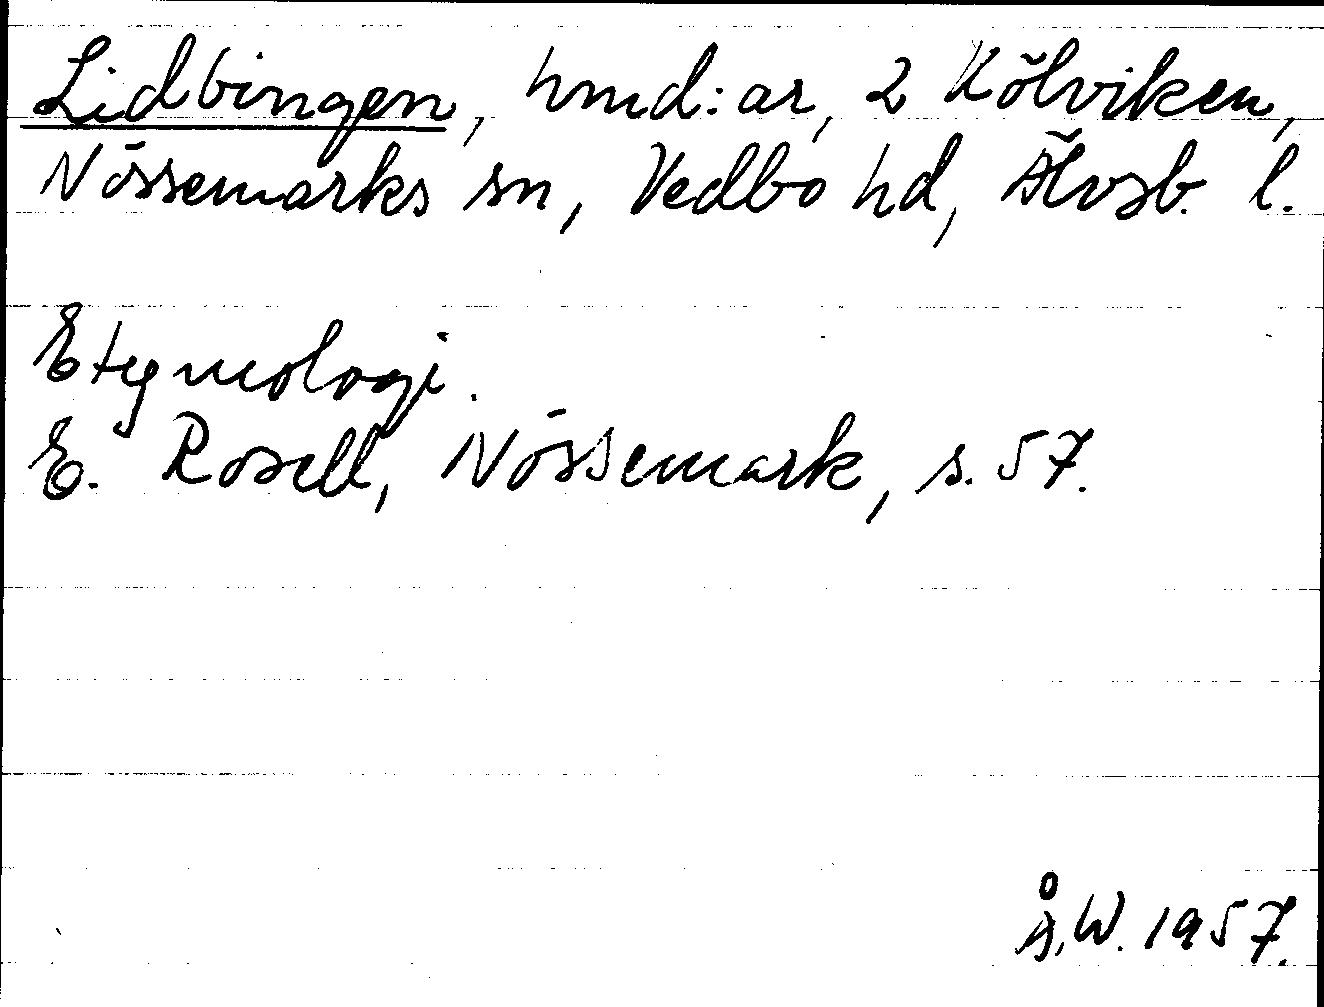 Lidbingen, hmd:ar, 2 Kölviken,
Nössemarks sn, Vedbo hd, Älvsb. l.
Etymologi.
E. Rosell, Nössemark, s. 57.
Å.W. 1957.